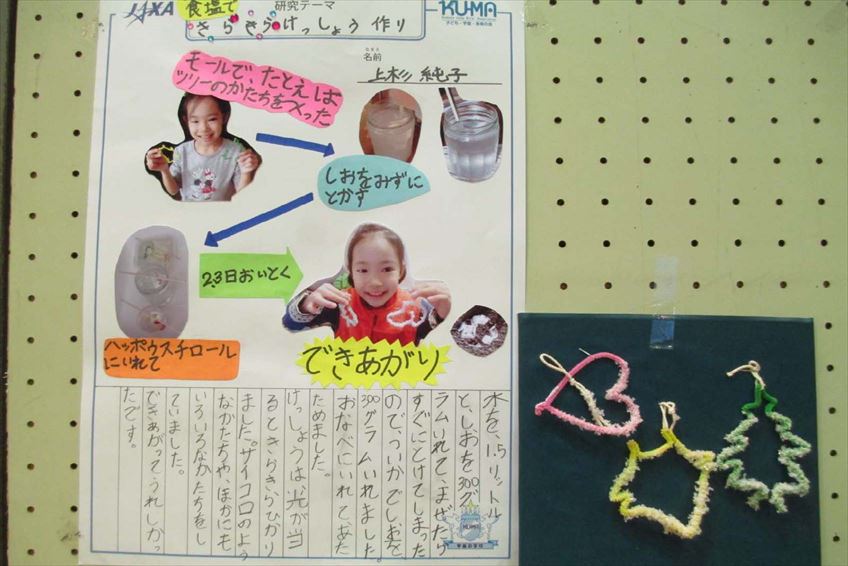 JAXA
食塩で
研究テーマ
KU-MA
子ども・宇宙・未来の会
きらきらけっしょう作り
なまえ
名前
上杉 純子
モールで、たとえば
ツリーのかたちをつくった
しおをみずに
とかす
2.3日おいとく
ハッポウスチロール
にいれて
できあがり
水を、1.5リットル
と、しおを300グ
ラムいれて、まぜたら
すぐにとけてしまった
ので、ついかでしおを
300グラムいれました。
おなべにいれてあた
ためました。
けっしょうは、光が当
るときらきらひかり
ました。サイコロのよう
なかたちや、ほかにも
いろいろなかたちをし
ていました。
できあがってうれしかっ
たです。
KU-MA
宇宙の学校